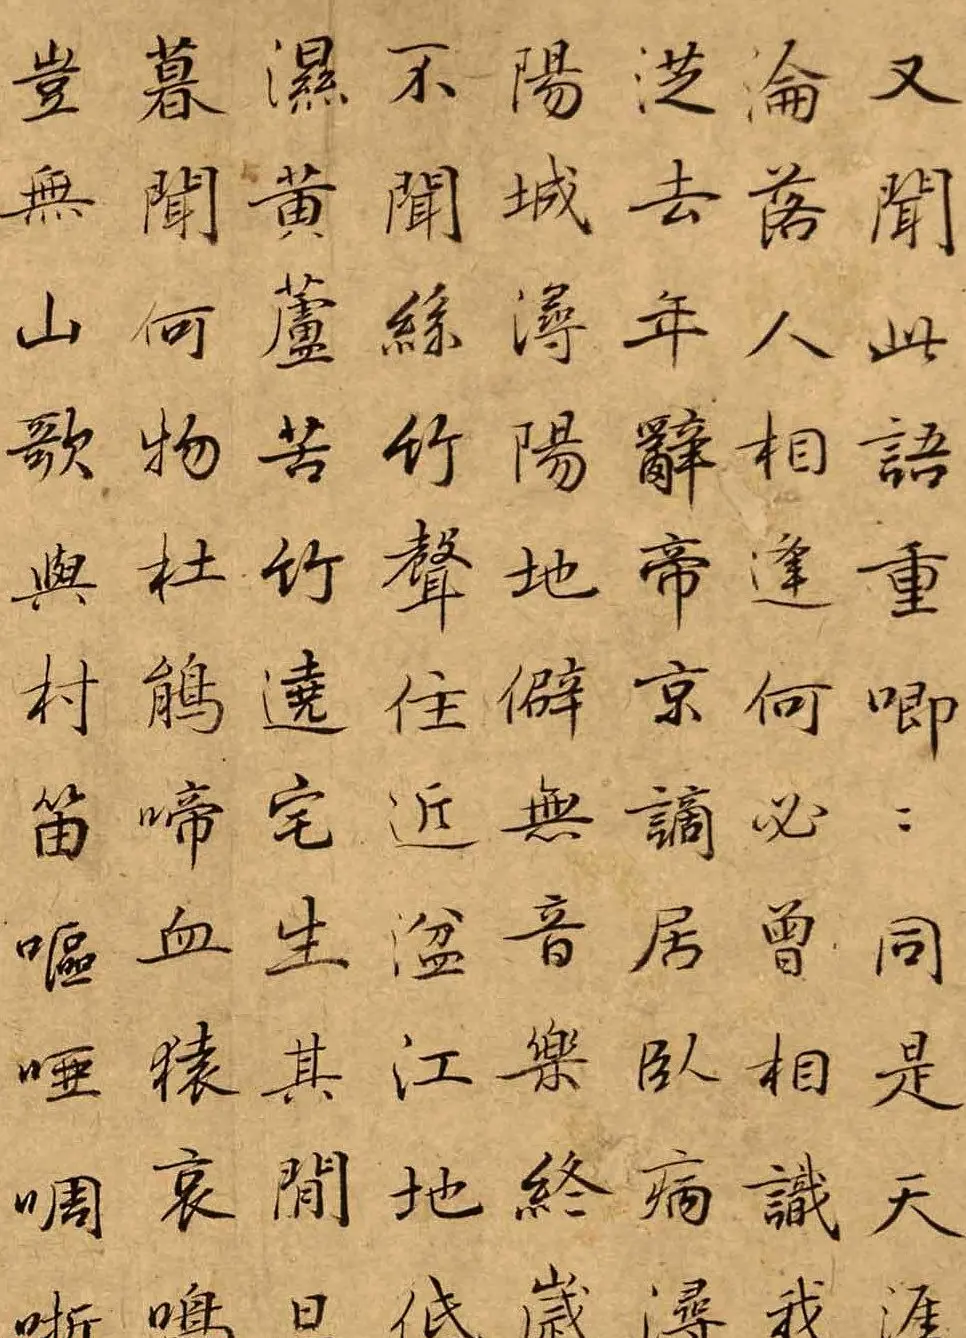 又聞此語重唧〻同是天涯
淪落人相逢何必曾相識我
從去年辭帝京謫居臥病潯
陽城潯陽地僻無音樂終歲
不聞絲竹聲住近湓江地低
濕黃蘆苦竹遶宅生其間旦
暮聞何物杜鵑啼血猿哀鳴
豈無山歌與村笛嘔啞啁哳